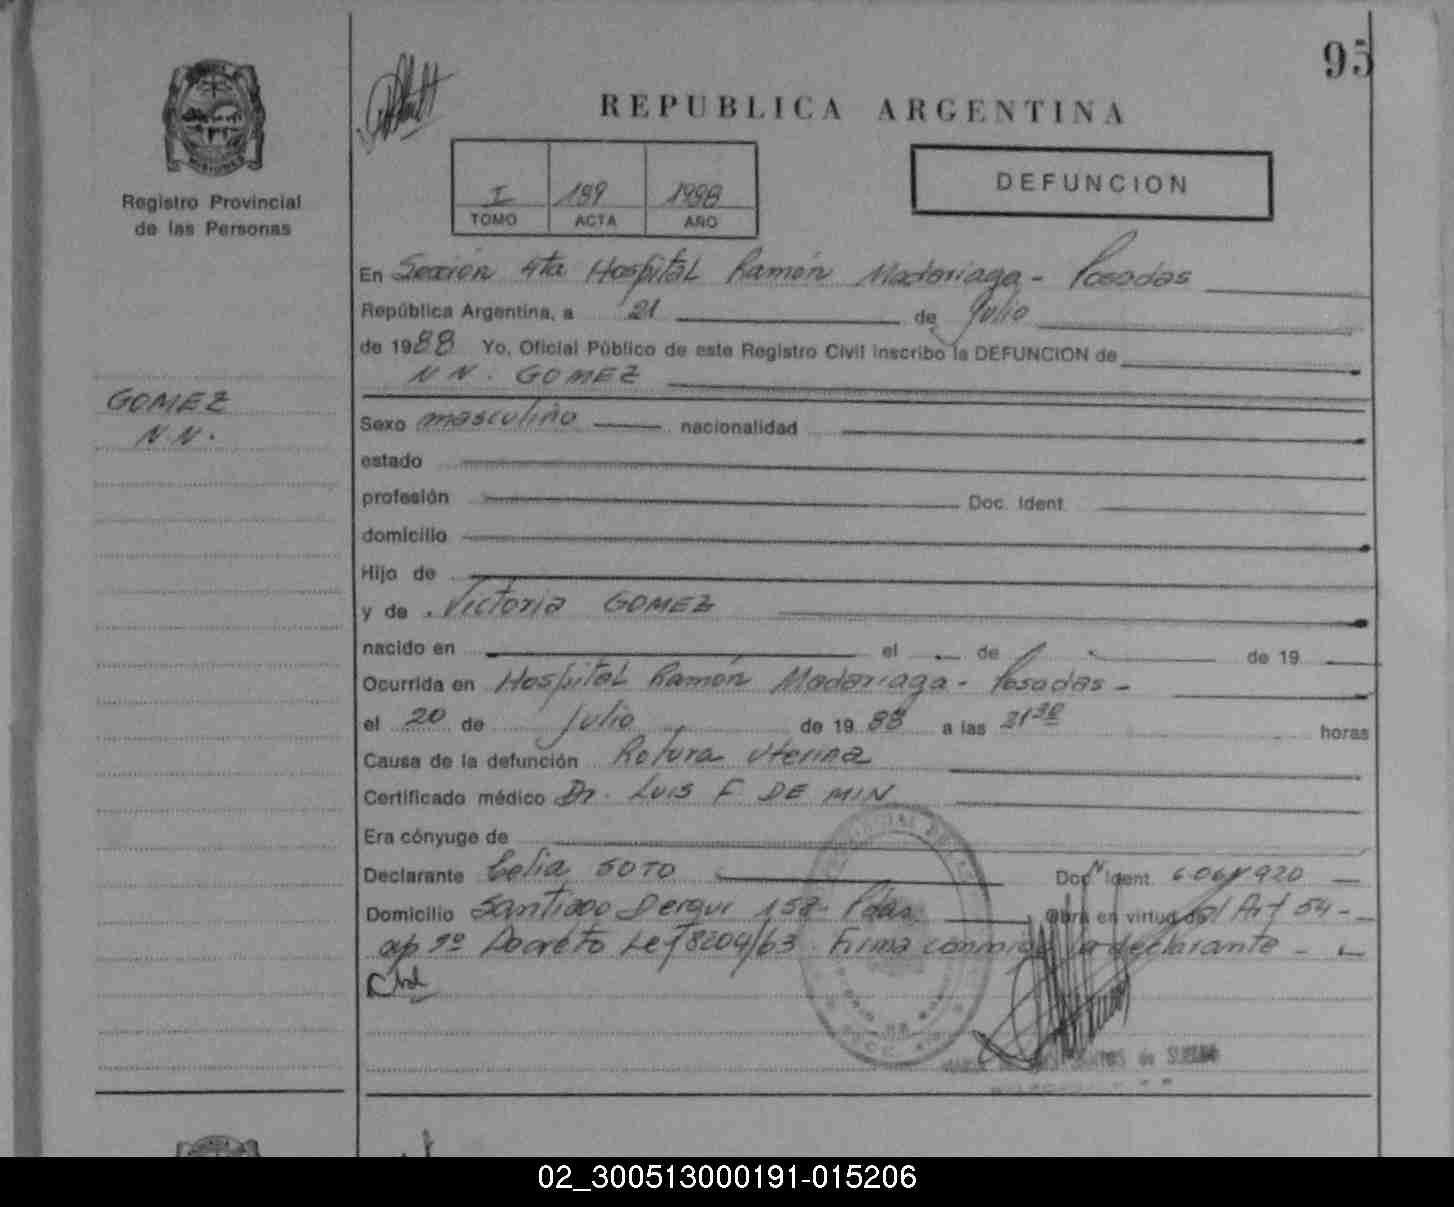 95
REPUBLICA ARGENTINA
Registro Provincial
de las Personas
I 189 1988
TOMO ACTA AÑO
DEFUNCION
En Sección 4ta Hospital Ramón Madariaga - Posadas
República Argentina, a 21 de Julio
de 1988 Yo, Oficial Público de este Registro Civil inscribo la DEFUNCION de
N N. GOMEZ
GOMEZ
N.N.
Sexo masculino nacionalidad
estado
profesión Doc. Ident.
domicilio
Hijo de
y de Victoria GOMEZ
nacido en el de de 19
Ocurrida en Hospital Ramón Madariaga - Posadas -
el 20 de Julio de 1988 a las 21 30 horas
Causa de la defunción Rotura Uterina
Certificado médico Dr. LUIS F. DE MIN
Era cónyuge de
Declarante Celia SOTO Doc. Ident.
Domicilio Santiago Derqui 158 - Pdas. Obra en virtud del Art 54 -
ap 1º Decreto Ley 8204/63. Firma conmigo la declarante -
02_300513000191-015206